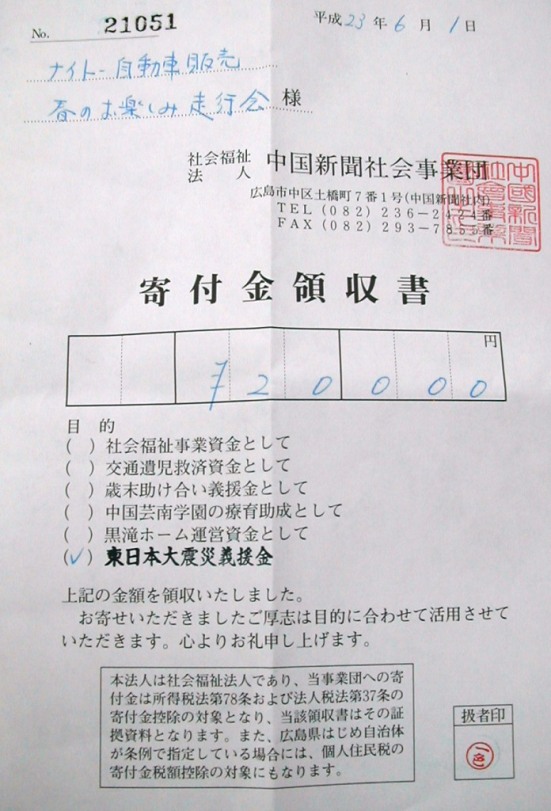 No. 21051
平成23年6月1日
ナイトー自動車販売
春のお楽しみ走行会 様
社会福祉法人 中国新聞社会事業団
広島市中区土橋町7番1号(中国新聞社内)
TEL(082)236-2424番
FAX(082)293-7855番
寄付金領収書
円
¥200000
目的
( )社会福祉事業資金として
( )交通遺児救済資金として
( )歳末助け合い義援金として
( )中国芸南学園の療育助成として
( )黒滝ホーム運営資金として
(✓)東日本大震災義援金
上記の金額を領収いたしました。
お寄せいただきましたご厚志は目的に合わせて活用させて
いただきます。心よりお礼申し上げます。
本法人は社会福祉法人であり、当事業団への寄
付金は所得税法第78条および法人税法第37条の
寄付金控除の対象となり、当該領収書はその証
拠資料となります。また、広島県はじめ自治体
が条例で指定している場合には、個人住民税の
寄付金税額控除の対象にもなります。
扱者印